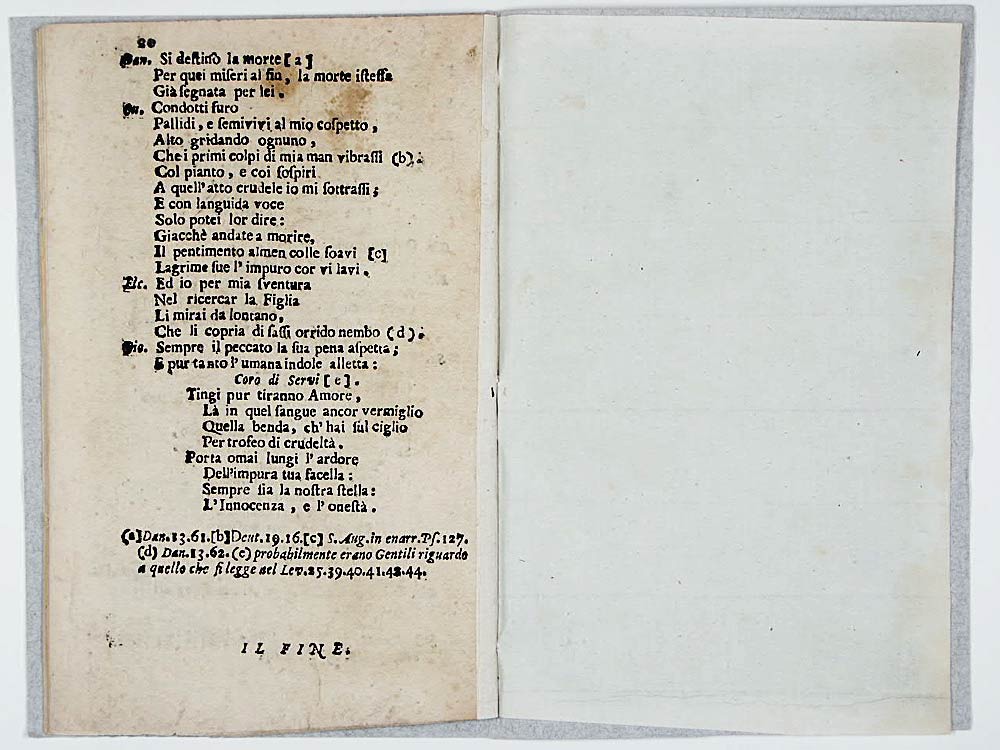 20
Dan. Si destinò la morte [a]
Per quei miseri al fin, la morte istessa
Già segnata per lei.
Su. Condotti furo
Pallidi, e semivivi al mio cospetto,
Alto gridando ognuno,
Che i primi colpi di mia man vibrassi (b).
Col pianto, e coi sospiri
A quell'atto crudele io mi sottrassi;
E con languida voce
Solo potei lor dire:
Giacchè andate a morire,
Il pentimento almen colle soavi [c]
Lagrime sue l'impuro cor vi lavi.
Elc. Ed io per mia sventura
Nel ricercar la Figlia
Li mirai da lontano,
Che li copria di sassi orrido nembo (d).
Gio. Sempre il peccato la sua pena aspetta;
E pur tanto l'umana indole alletta:
Coro di Servi [e].
Tingi pur tiranno Amore,
Là in quel sangue ancor vermiglio
Quella benda, ch'hai sul ciglio
Per trofeo di crudeltà.
Porta omai lungi l'ardore
Dell'impura tua facella:
Sempre sia la nostra stella:
L'Innocenza, e l'onestà.
(a] Dan. 13. 61. [b] Deut. 19. 16. [c] S. Aug. in enarr. Ps. 127.
(d) Dan. 13. 62. (e) probabilmente erano Gentili riguardo
a quello che si legge nel Lev. 25. 39. 40. 41. 42. 44.
IL FINE.